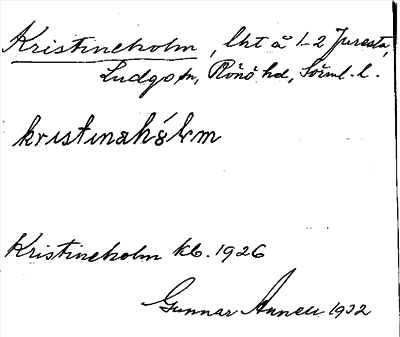 Kristineholm, lht å 1-2 Juresta,
Ludgo sn, Rönö hd, Sörml. l.
kristinahólm
Kristineholm kb. 1926
Gunnar Annell 1932